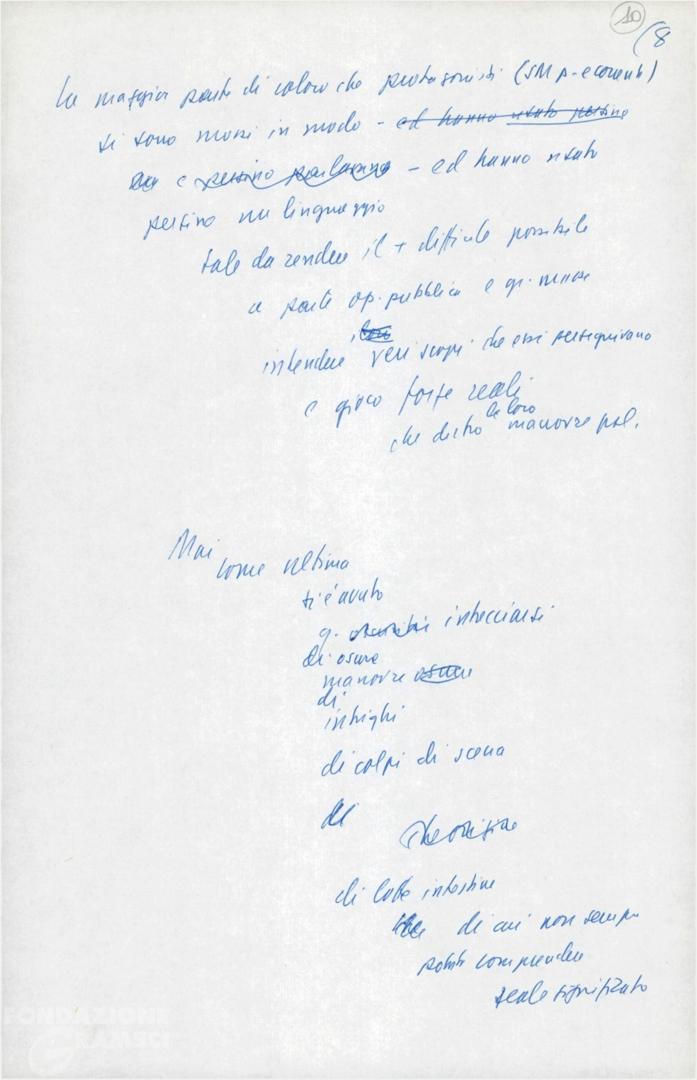 10
(8
La maggior parte di coloro che protagonisti (SM p-economh)
si sono mossi in modo - ed hanno usato persino
e persino parlavano - ed hanno usato
persino un linguaggio
tale da rendere il + difficile possibile
a parte op. pubblica e gr. masse
loro
intendere i veri scopi che essi perseguivano
e gioco forze reali
le loro
che dietro manovre pol.
Mai
come ultima
si è avuto
q. intrecciarsi
di oscure
manovre oscure
di
intrighi
di colpi di scena
di
di lotte intestine
di cui non sempre
potuto comprendere
reale significato
FONDAZIONE
GRAMSCI